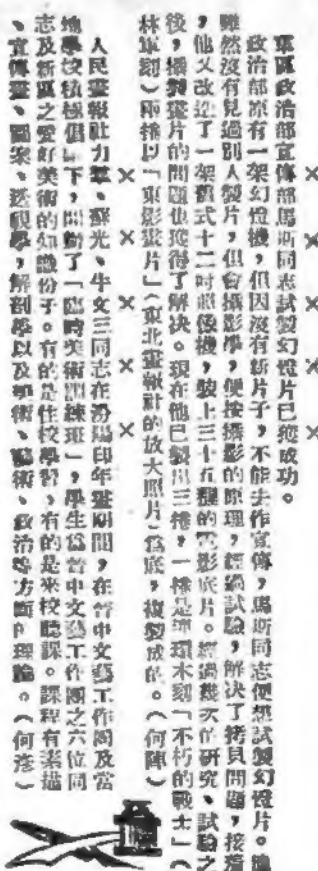 軍區政治部宣傳部馬斯同志試製幻燈片已獲成功。
政治部原有一架幻燈機，但因沒有新片子，不能去作宣傳，馬斯同志便想試製幻燈片。他
雖然沒有見過別人製片，但會攝影學，便按攝影的原理，經過試驗，解決了拷貝問題，接着
，他又改造了一架舊式十二吋照像機，裝上三十五糎的電影底片。經過幾次的研究、試驗之
後，攝製燈片的問題也獲得了解決。現在他已製出三捲，一捲是連環木刻「不朽的戰士」（
林軍刻）兩捲以「東影畫片」（東北畫報社的放大照片）爲底，複製成的。（何陣）
× × × × ×
人民畫報社力羣、蘇光、牛文三同志在汾陽印年畫期間，在晉中文藝工作團及當
地學校積極倡　下，開辦了「臨時美術訓練班」，學生爲晉中文藝工作團之六位同
志及新區之愛好美術的知識份子。有的是住校學習，有的是來校聽課。課程有素描
、宣傳畫、圖案、透視學，解剖學以及　術、藝術、政治等方面的理論。（何彥）